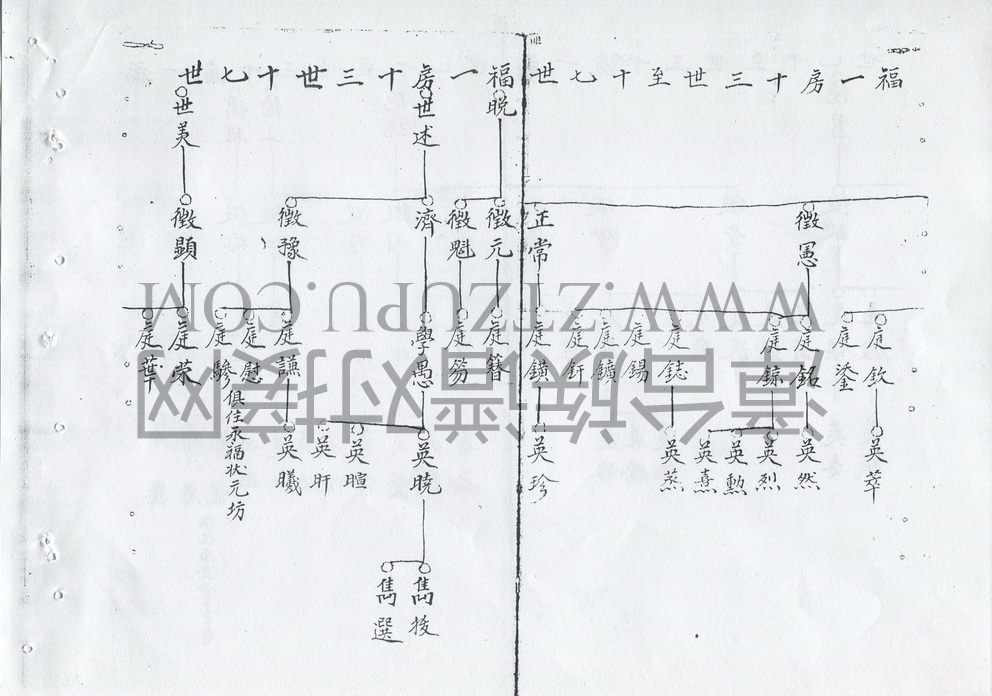 福一房十三世至十七世
徵愚
正常
庭欽
庭鋈
庭銘
庭鍄
庭鋕
庭錫
庭鑛
庭釬
庭鐄
英萃
英然
英烈
英勲
英熹
英蒸
英珍
福一房十三世十七世
晩
世述
世美
徵元
徵魁
濟
徵豫
徵顯
庭簪
庭笏
學愚
庭謙
庭慰
庭驂
俱住永福狀元坊
庭荣
庭葦
英曉
英暄
英旰
英曦
雋㧞
雋選
WWW.ZTZUPU.COM
漳台族谱对接网